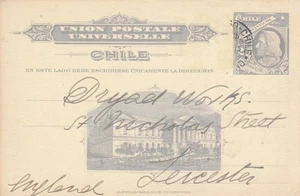 UNION POSTALE
UNIVERSELLE
CHILE
CHILE
EN ESTE LADO DEBE ESCRIBIRSE ÚNICAMENTE LA DIRECCION
Dryad Works.
St Nicholas Street
Leicester
England